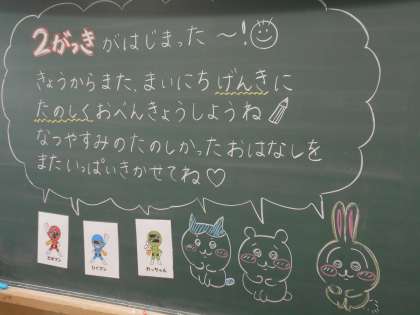 2がっきがはじまった〜!
きょうからまた、まいにちげんきに
たのしくおべんきょうしようね
なつやすみのたのしかったおはなしを
またいっぱいきかせてね♡